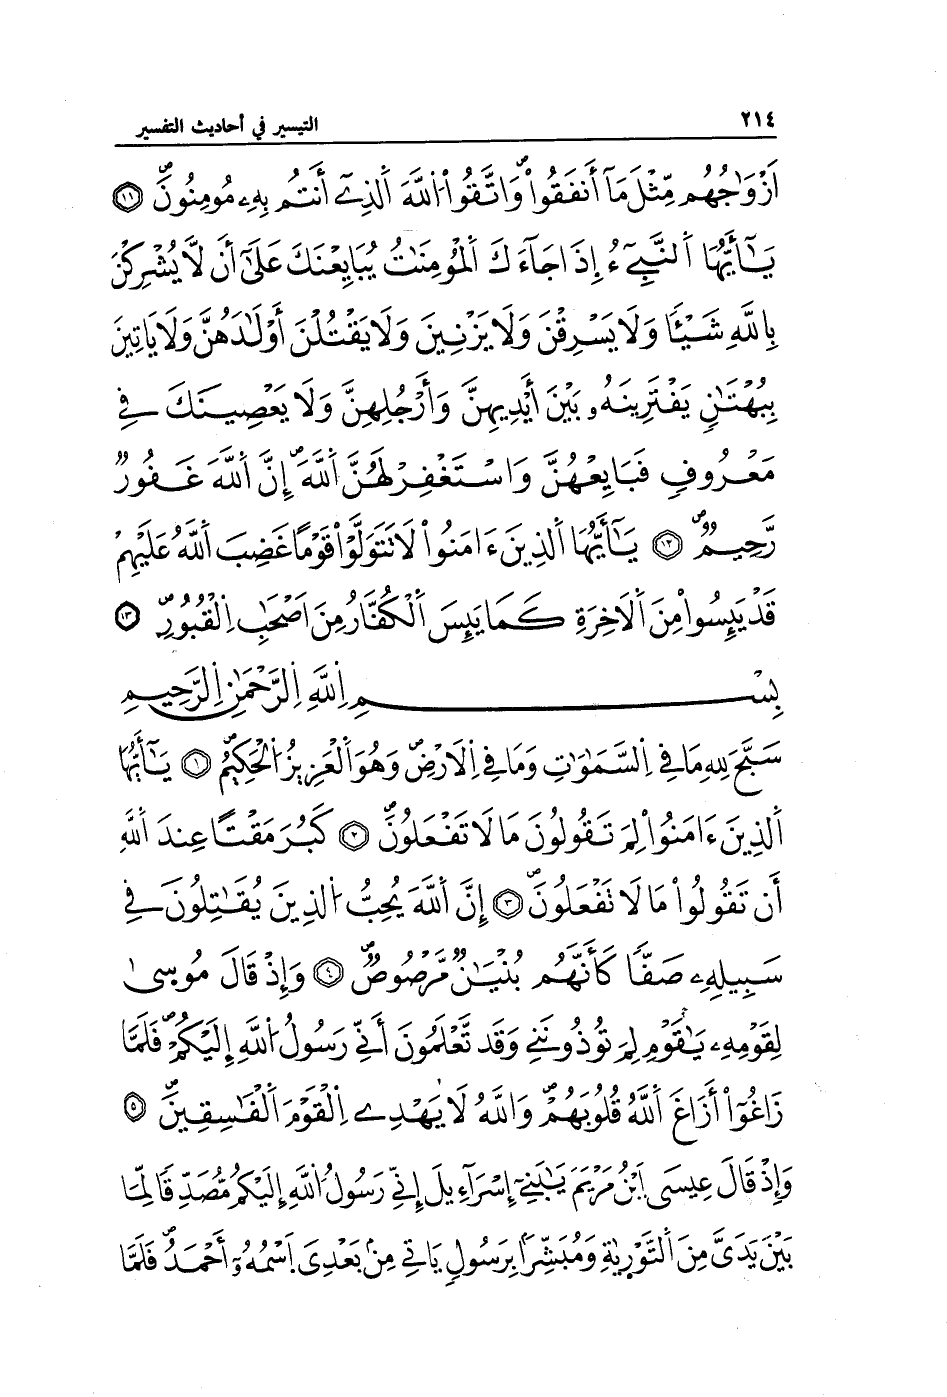 ٢١٤ التيسير في أحاديث التفسير
أَزْوَٰجُهُم مِّثْلَ مَآ أَنفَقُواْ وَاتَّقُواْ اُللَّهَ اَلذِےٓ أَنتُم بِهِۦ مُومِنُونَۖ ١١
يَـٰٓأَيُّهَا اَلنَّبِےٓءُ إِذَا جَآءَكَ اَلْمُؤْمِنَـٰتُ يُبَايِعْنَكَ عَلَىٰٓ أَن لَّا يُشْرِكْنَ
بِاللَّهِ شَيْـًٔا وَلَا يَسْرِقْنَ وَلَا يَزْنِينَ وَلَا يَقْتُلْنَ أَوْلَـٰدَهُنَّ وَلَا يَاتِينَ
بِبُهْتَـٰنٍ يَفْتَرِينَهُۥ بَيْنَ أَيْدِيهِنَّ وَأَرْجُلِهِنَّ وَلَا يَعْصِينَكَ فِے
مَعْرُوفٍ فَبَايِعْهُنَّ وَاسْتَغْفِرْ لَهُنَّ اَللَّهَۖ إِنَّ اَللَّهَ غَفُورٌ
رَّحِيمٌۖ ١٢ يَـٰٓأَيُّهَا اَلذِينَ ءَامَنُواْ لَا تَتَوَلَّوْاْ قَوْمًا غَضِبَ اَللَّهُ عَلَيْهِمْ
قَدْ يَئِسُواْ مِنَ اَلَاخِرَةِ كَمَا يَئِسَ اَلْكُفَّارُ مِنَ اَصْحَـٰبِ اِلْقُبُورِۖ ١٣
بِسْمِ اِللَّهِ اِلرَّحْمَـٰنِ اِلرَّحِيمِ
سَبَّحَ لِلهِ مَا فِے اِلسَّمَـٰوَٰتِ وَمَا فِے اِلَارْضِۖ وَهُوَ اَلْعَزِيزُ اُلْحَكِيمُۖ ١ يَـٰٓأَيُّهَا
اَلذِينَ ءَامَنُواْ لِمَ تَقُولُونَ مَا لَا تَفْعَلُونَۖ ٢ كَبُرَ مَقْتًا عِندَ اَللَّهِ
أَن تَقُولُواْ مَا لَا تَفْعَلُونَۖ ٣ إِنَّ اَللَّهَ يُحِبُّ اُلذِينَ يُقَـٰتِلُونَ فِے
سَبِيلِهِۦ صَفًّا كَأَنَّهُم بُنْيَـٰنٌ مَّرْصُوصٌۖ ٤ وَإِذْ قَالَ مُوسىٰ
لِقَوْمِهِۦ يَـٰقَوْمِ لِمَ تُوذُونَنِے وَقَد تَّعْلَمُونَ أَنِّے رَسُولُ اُللَّهِ إِلَيْكُمْۖ فَلَمَّا
زَاغُوٓاْ أَزَاغَ اَللَّهُ قُلُوبَهُمْۖ وَاللَّهُ لَا يَهْدِے اِلْقَوْمَ اَلْفَـٰسِقِينَۖ ٥
وَإِذْ قَالَ عِيسَى اَبْنُ مَرْيَمَ يَـٰبَنِےٓ إِسْرَآءِيلَ إِنِّے رَسُولُ اُللَّهِ إِلَيْكُم مُّصَدِّقًا لِّمَا
بَيْنَ يَدَيَّ مِنَ اَلتَّوْرٜيٰةِ وَمُبَشِّرًا بِرَسُولٍ يَاتِے مِنۢ بَعْدِيَ اَسْمُهُۥٓ أَحْمَدُۖ فَلَمَّا